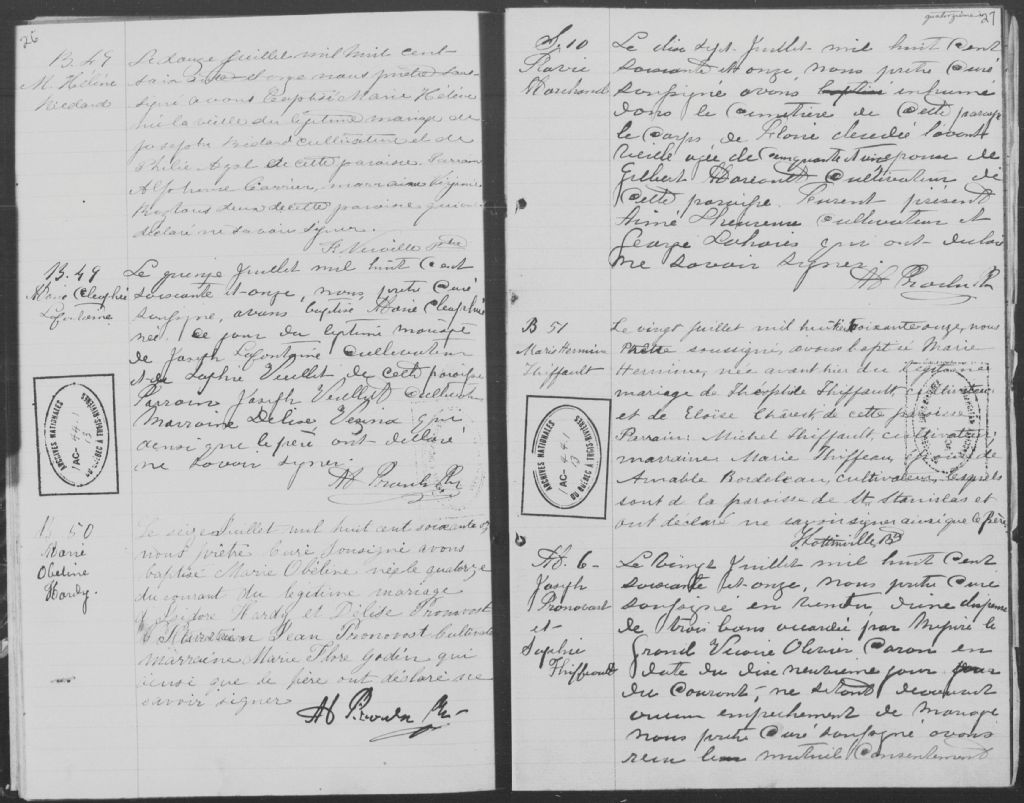 26
B. 49
M. Hélène
Bedard
Le douze Juillet mil huit cent
soixante et onze nous prêtre sous-
signé avons baptisé Marie Hélène
née la veille du légitime mariage de
Joseph Bédard cultivateur et de
Philie Ayot de cette paroisse. Parrain
Alphonse Carrier, marraine
deux de cette paroisse qui ont
déclaré ne savoir signer.
F. Neuville Ptre
B. 49
Marie Cleophée
Lafontaine
Le quinze Juillet mil huit Cent
soixante et-onze, nous, prêtre Curé
soussigné, avons baptisé Marie Cleophée
née ce jour du légitime mariage
de Joseph Lafontaine Cultivateur
et de Sophie Veillet de cette paroisse
Parrain Joseph Veillet Cultivateur
Marraine Delise Vesina qui
ainsi que le père ont déclaré
ne savoir signer.
ARCHIVES NATIONALES
AC- 44.1
13
DU QUÉBEC À TROIS-RIVIÈRES
B. 50
Marie
Obéline
Hardy.
Le seize Juillet mil huit cent soixante et
nous prêtre Curé soussigné avons
baptisé Marie Obéline née le quatorze
du courant du légitime mariage
d'Isidore Hardy et Délise Pronovost
Jean Pronovost Cultivateur
marraine Marie Flore Godin qui
ainsi que le père ont déclaré ne
savoir signer
quatorzième 27
S. 10
Flavie
Marchand
Le dix Sept Juillet mil huit Cent
soixante et onze, nous prêtre Curé
soussigné avons inhumé
dans le cimetière de Cette paroisse
le Corps de décédée l'avant
veille agée de Cinquante et un épouse de
Gilbert Cultivateur de
Cette paroisse. Furent présent
Aimé L'heureux Cultivateur et
George qui ont déclaré
ne savoir signer.
B 51
Marie Hermine
Thiffault
Le vingt juillet mil huit cent soixante onze, nous
Prêtre soussigné, avons baptisé Marie
Hermine, née avant hier du légitime
mariage de Théophile Thiffault, cultivateur
et de Eloise de cette paroisse
Parrain: Michel Thiffault, cultivateur;
marraine: Marie Thiffeau, épouse de
Amable Bordeleau, cultivateur, lesquels
sont de la paroisse de St. Stanislas et
ont déclaré ne savoir signer ainsi que le Père.
ARCHIVES NATIONALES
AC- 44.1
13
DU QUÉBEC À TROIS-RIVIÈRES
M. 6-
Joseph
Pronovost
et-
Sophie
Thiffeault
Le vingt Juillet mil huit Cent
soixante et-onze, nous prêtre Curé
soussigné en vertu, d'une dispense
de trois bans accordée par Messire le
Grand Vicaire Olivier Caron en
date du dixe neuvième jour
du Courant, ne s'étant découvert
aucun empêchement de mariage
nous prêtre Curé soussigné avons
reçu leur mutuel Consentement